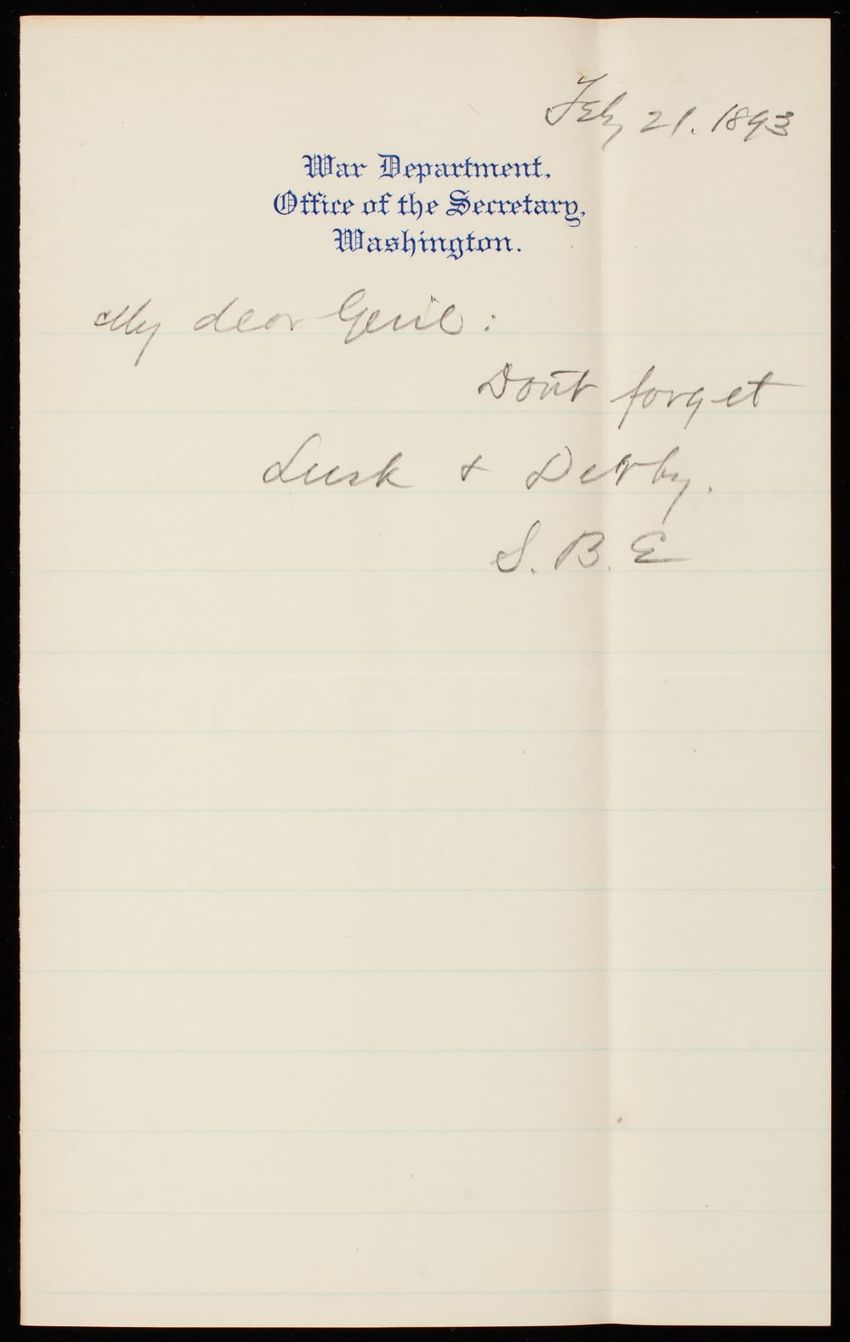 Feby 21. 1893
War Department,
Office of the Secretary,
Washington.
My dear Gen'l:
Don't forget
Lusk & Derby.
S. B. E